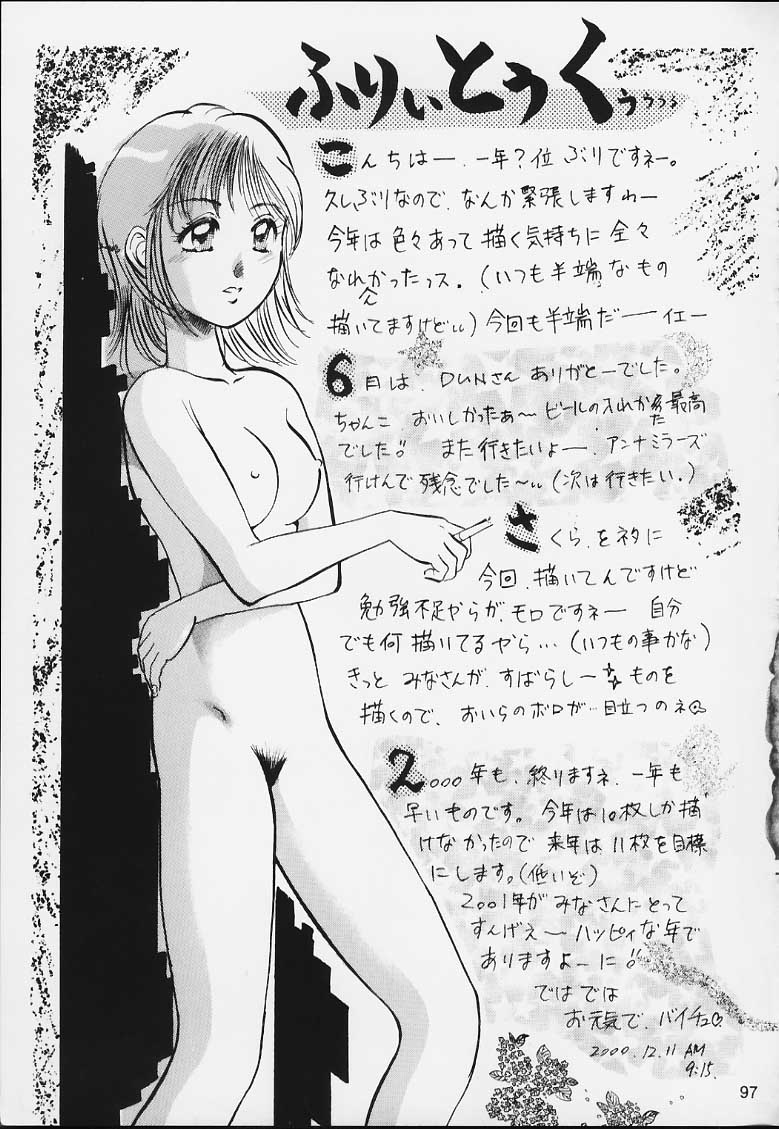 ふりぃとぅくぅぅぅぅ
こんちはー、一年？位ぶりですネー。
久しぶりなので、なんか緊張しますわー
今年は色々あって描く気持ちに全々
なれかったっス。(いつも半端なもの
描いてますけど〜)今回も半端だーーイエー
6月は、DUNさんありがとーでした。
ちゃんこ、おいしかったぁ〜ビールの入れかた最高
でした!! また行きたいよー、アンナミラーズ
行けんで残念でした〜(次は行きたい。)
さくら、をネタに
今回、描いてんですけど
勉強不足やらが、モロですネー 自分
でも何描いてるやら…(いつもの事かな)
きっと みなさんが、すばらしー ものを
描くので、おいらのボロが…目立つのネ
2000年も、終りますネ、一年も
早いものです。今年は10枚しか描
けなかったので 来年は11枚を目標
にします。(低いぞ)
2001年がみなさんにとって
すんげえーハッピィな年で
ありますよーに!!
ではでは
お元気で、バイチュ♡
2000.12.11 AM
9:15.
97